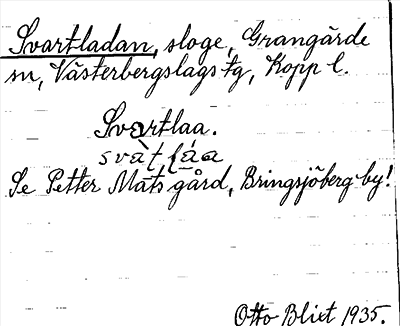 Svartladan, sloge, Grangärde
sn, Västerbergslags tg, Kopp l.
Svartlaa.
svàt l̨áa
Se Petter Mats gård, Bringsjöberg by!
Otto Blixt 1935.